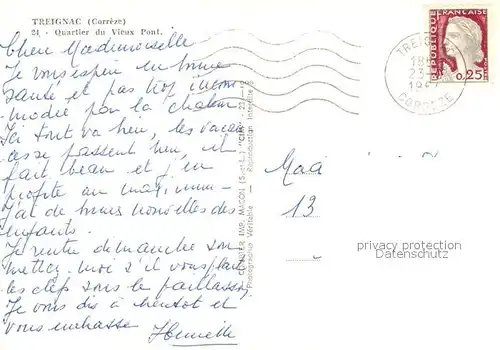 TREIGNAC (Corrèze)
21 - Quartier du Vieux Pont.
Chère Mademoiselle
Je vous espère en bonne
santé et pas trop incom-
modée par la chaleur
Ici tout va bien, les vacan
ces se passent bien, il
fait beau et j'en
profite au maximum -
J'ai de bonnes nouvelles des
enfants.
Je rentre dimanche soir
mettez-moi s'il vous plait
les clefs sous le paillasson,
Je vous dis à bientôt et
vous embrasse
IMP. MACON (S.-et-L.) "CIM"
Photographie Véritable - Reproduction Interdite
REPUBLIQUE FRANÇAISE
0,25
TREIG
18
CORREZE
13
privacy protection
Datenschutz